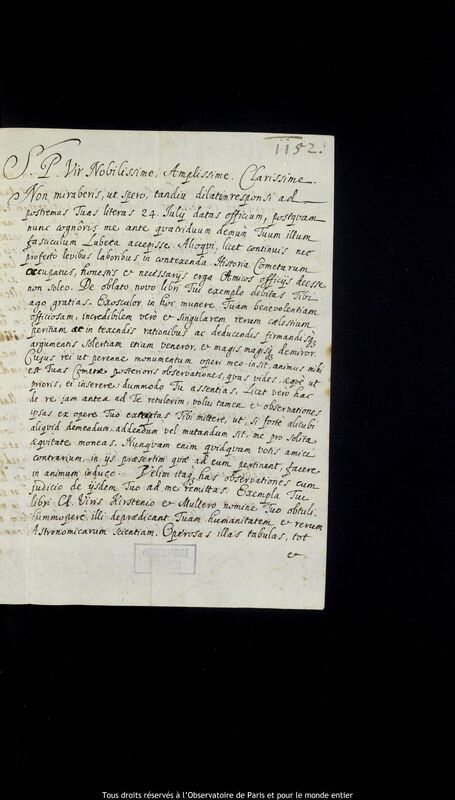 1152.
S. P. Vir Nobilissime, Amplissime. Clarissime
Non miraberis, ut spero, tandiu dilatum responsi ad
postremas Tuas literas 24. Julij datas officium, postqvam
nunc cognoris me ante qvatriduum demum Tuum illum
fasciculum Lubeca accepisse. Alioqvi, licet continuis nec
profecto levibus laboribus in contexenda Historia Cometarum
occupatus, honestis et necessarijs erga Amicos officijs deesse
non soleo. De oblato novo libri Tui exemplo debitas Tibi
ago gratias. Exosculor in hoc munere Tuam benevolentiam
officiosam, incredibilem vero et singularem rerum cælestium
peritam in texendis rationibus ac deducendis firmandisq;
argumentis solertiam etiam veneror, et magis magisq; demiror.
Cujus rei ut perenne monumentum operi meo insit, animus mihi
est Tuas Cometæ posterioris observationes, qvas vides, æqve ut
prioris, ei inserere: dummodo Tu assentias. Licet vero hac
de re jam antea ad Te retulerim, volui tamen et observationes
ipsas ex opere Tuo Tibi mittere, ut, si forte alicubi
aliqvid demendum, addendum vel mutandum sit, me pro solita
æqvitate moneas. Nunqvam enim qvidqvam votis amici
contrarium, in ijs præsertim qvæ ad eum pertinent, facere
in animum induco. Velim itaq; has observationes cum
judicio de ijsdem Tuo ad me remittas. Exempla Tui
libri Cl. Viris Kirstenio et Mullero nomine Tuo obtuli.
Summopere illi deprædicant Tuam humanitatem et rerum
Astronomicarum scientiam. Operosas illas tabulas, tot
et
OBSERVATOIRE
Tous droits réservés à l'Observatoire de Paris et pour le monde entier